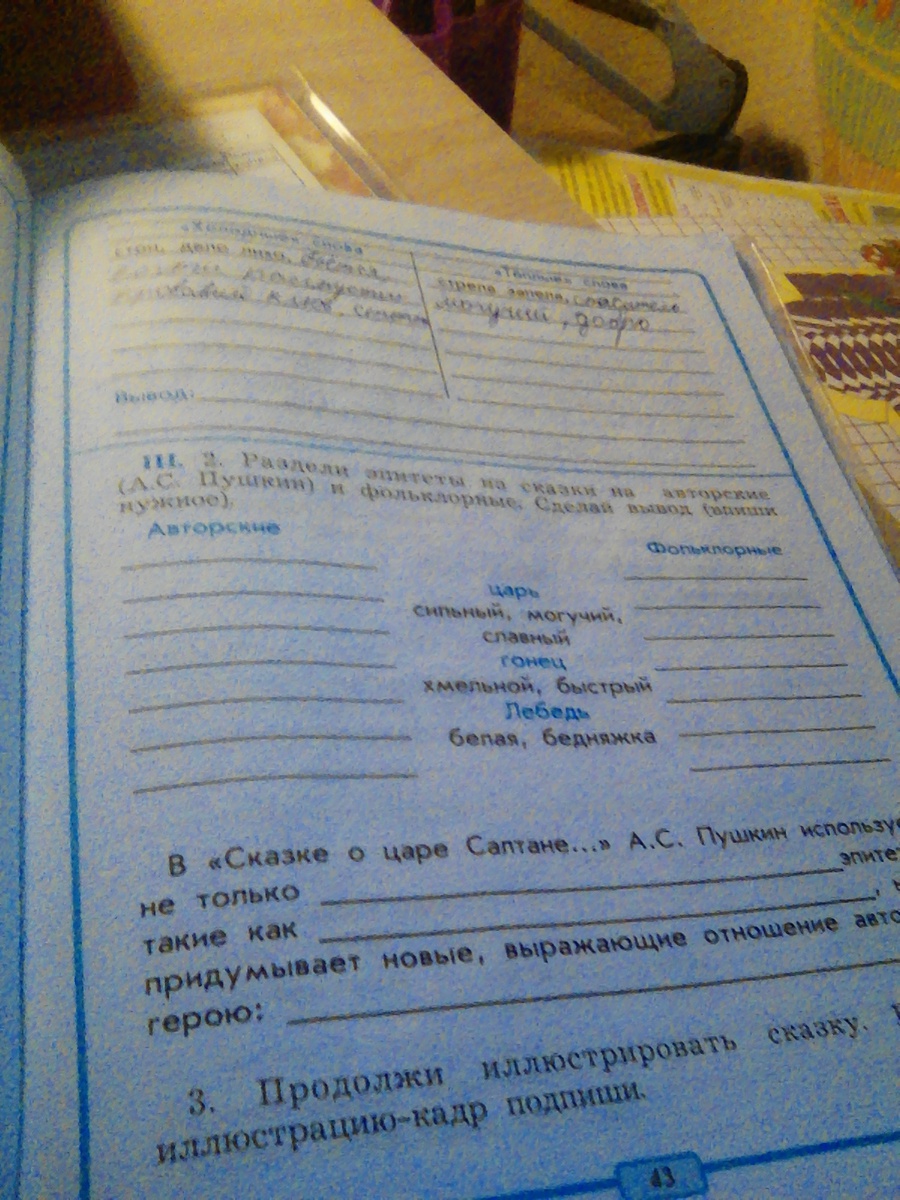 «Холодные» слова
стон, дело лихо, бьётся
когти распустил
«Тёплые» слова
стрела запела, спаситель
могучий, добро
Вывод:
III. 2. Раздели эпитеты из сказки на авторские
(А.С. Пушкин) и фольклорные. Сделай вывод (впиши
нужное).
Авторские
Фольклорные
царь
сильный, могучий,
славный
гонец
хмельной, быстрый
Лебедь
белая, бедняжка
В «Сказке о царе Салтане...» А.С. Пушкин используе
не только эпитет
такие как , н
придумывает новые, выражающие отношение авто
герою:
3. Продолжи иллюстрировать сказку.
иллюстрацию-кадр подпиши.
43